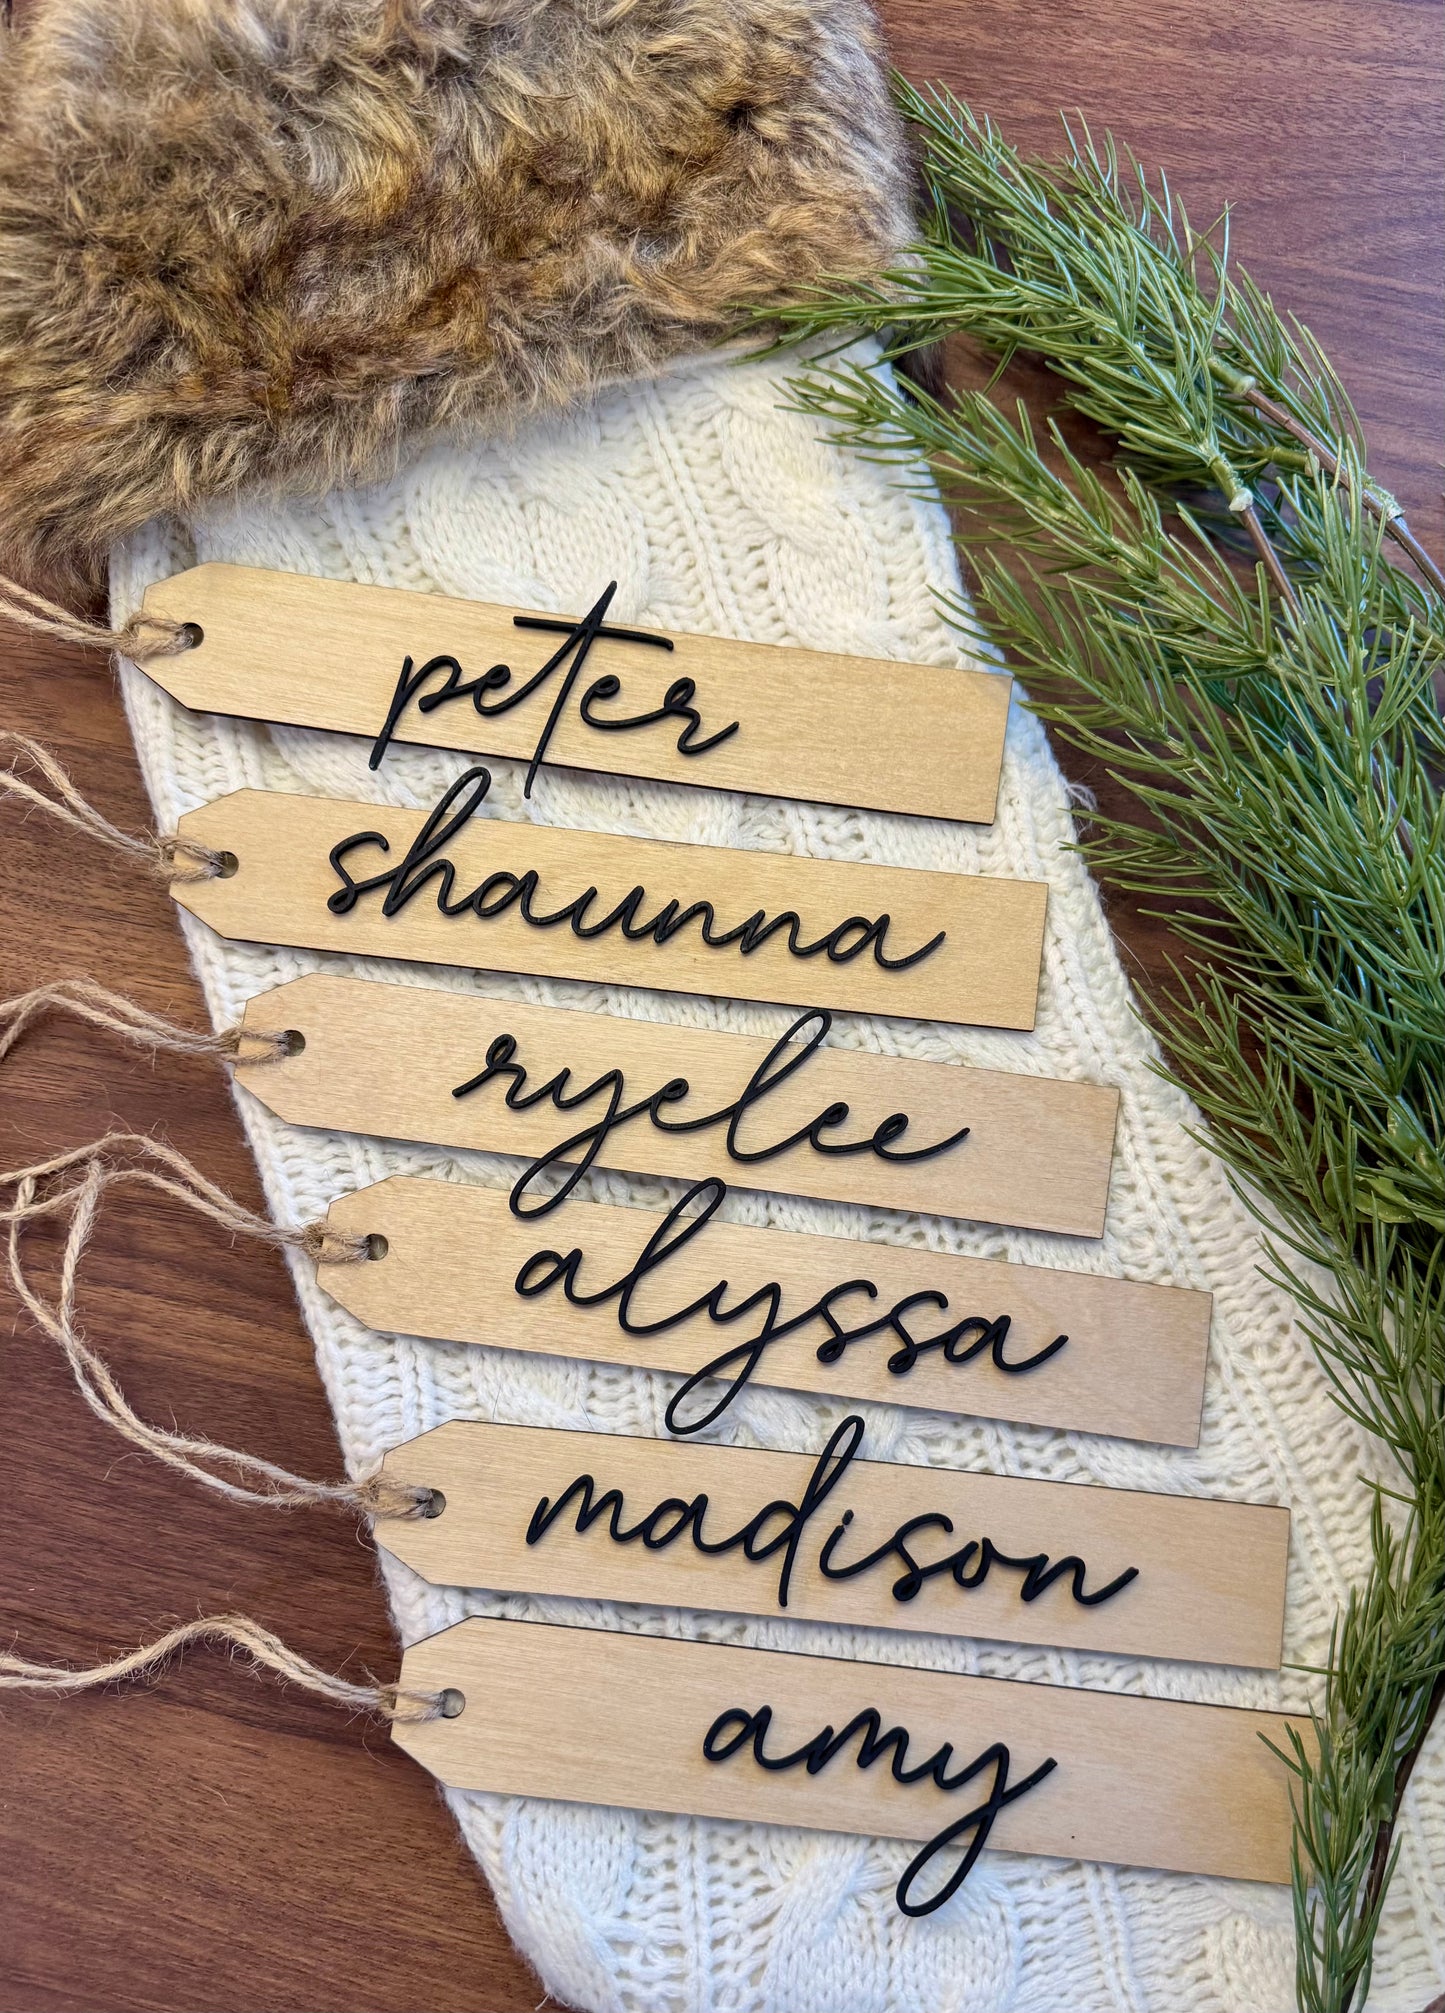 peter
shaunna
ryelee
alyssa
madison
amy